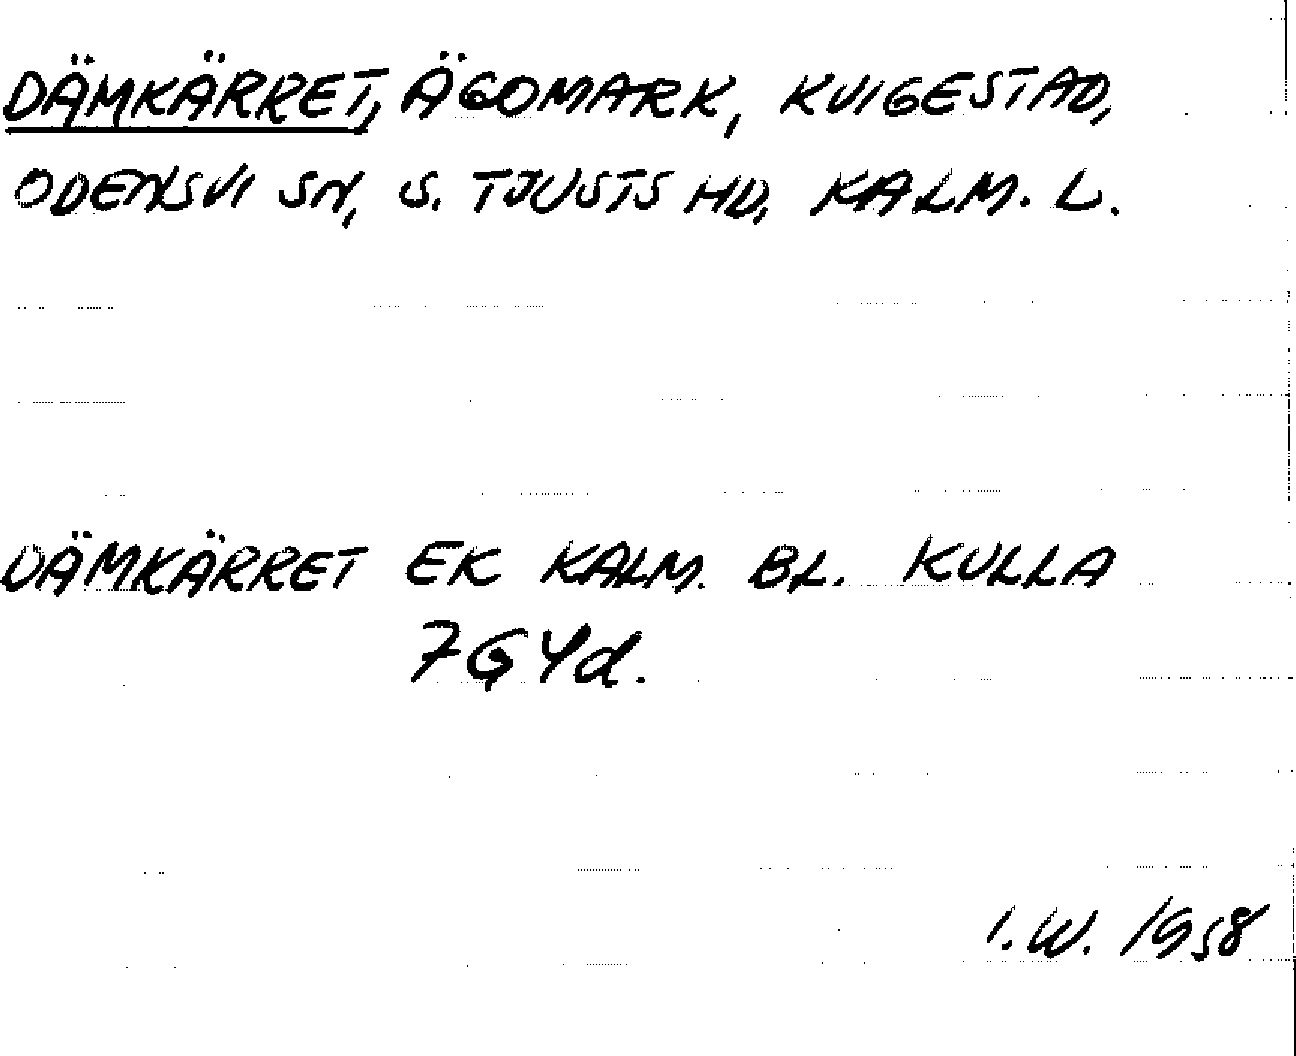 DÄMKÄRRET, ÄGOMARK, KVIGESTAD,
ODENSVI SN, S. TJUSTS HD, KALM. L.
DÄMKÄRRET EK KALM. BL. KULLA
7G4d.
I.W. 1958